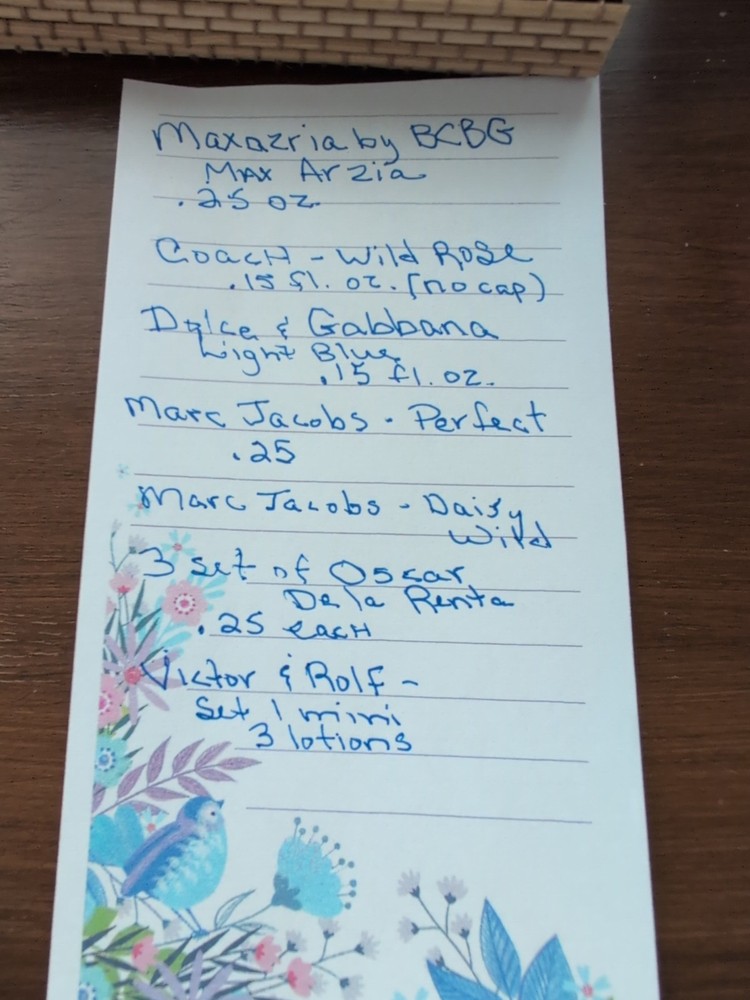 Maxazria by BCBG
Max Arzia
.25 oz.
Coach - Wild Rose
.15 fl. oz. (no cap)
Dolce & Gabbana
Light Blue
.15 fl. oz.
Marc Jacobs - Perfect
.25
Marc Jacobs - Daisy
Wild
3 set of Oscar
De la Renta
.25 each
Victor & Rolf -
Set 1 mini
3 lotions